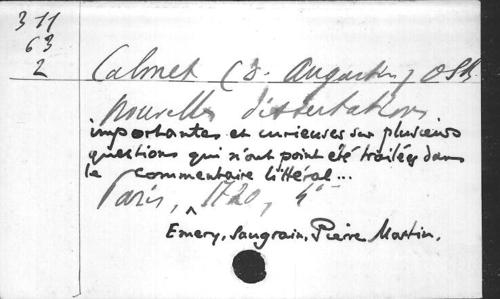 311
63
2
Calmet (D. Augustin) OSB
Nouvelles dissertations
importantes et curieuses sur plusieurs
questions qui n'ont point été traitées dans
le commentaire littéral...
Paris, 1720, 4°
Emery, Saugrain, Pierre Martin.